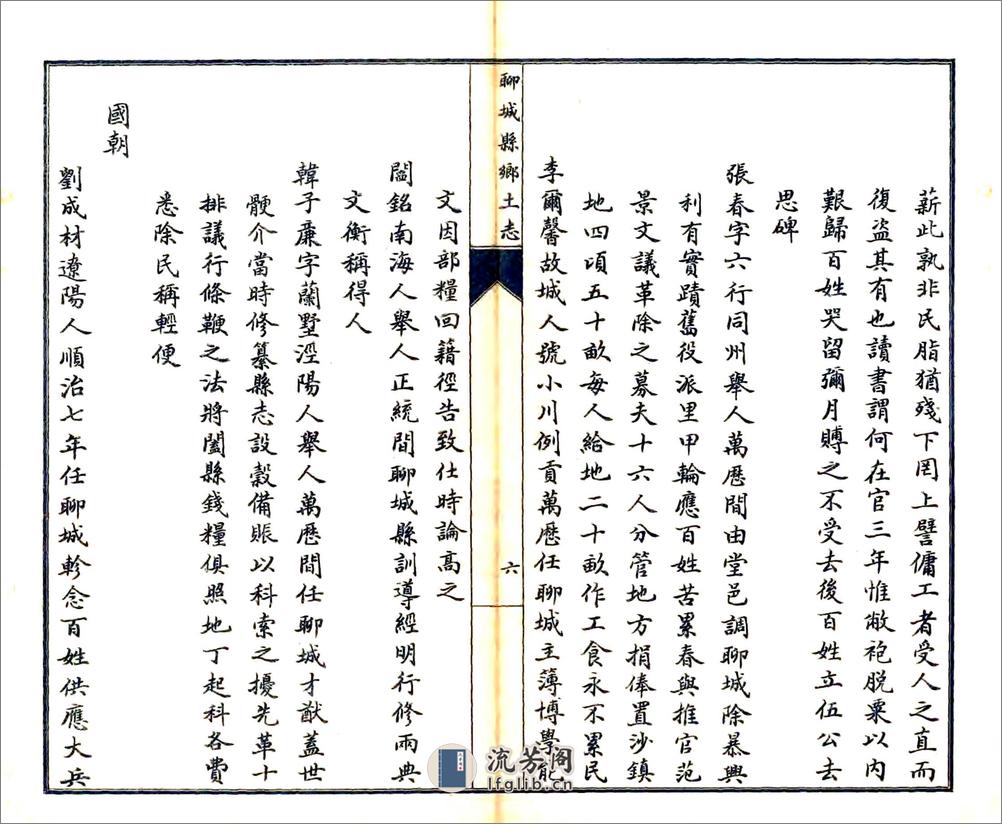 薪此孰非民脂猶殘下罔上譬傭工者受人之直而
復盜其有也讀書謂何在官三年惟敝袍脱粟以内
艱歸百姓哭留彌月賻之不受去後百姓立伍公去
思碑
張春字六行同州舉人萬歷間由堂邑調聊城除暴興
利有實蹟舊役派里甲輪應百姓苦累春與推官范
景文議革除之募夫十六人分管地方捐俸置沙鎮
地四頃五十畝每人給地二十畝作工食永不累民
李爾馨故城人號小川例貢萬歷任聊城主薄博學能
聊城縣鄉土志
六
文因部糧回籍徑告致仕時論高之
閻銘南海人舉人正統間聊城縣訓導經明行修兩典
文衡稱得人
韓子廉字蘭墅涇陽人舉人萬歷間任聊城才猷蓋世
骾介當時修纂縣志設穀備賑以科索之擾先革十
排議行條鞭之法將闔縣錢糧俱照地丁起科各費
悉除民稱輕便
國朝
劉成材遼陽人順治七年任聊城軫念百姓供應大兵
流芳阁
lfglib.cn